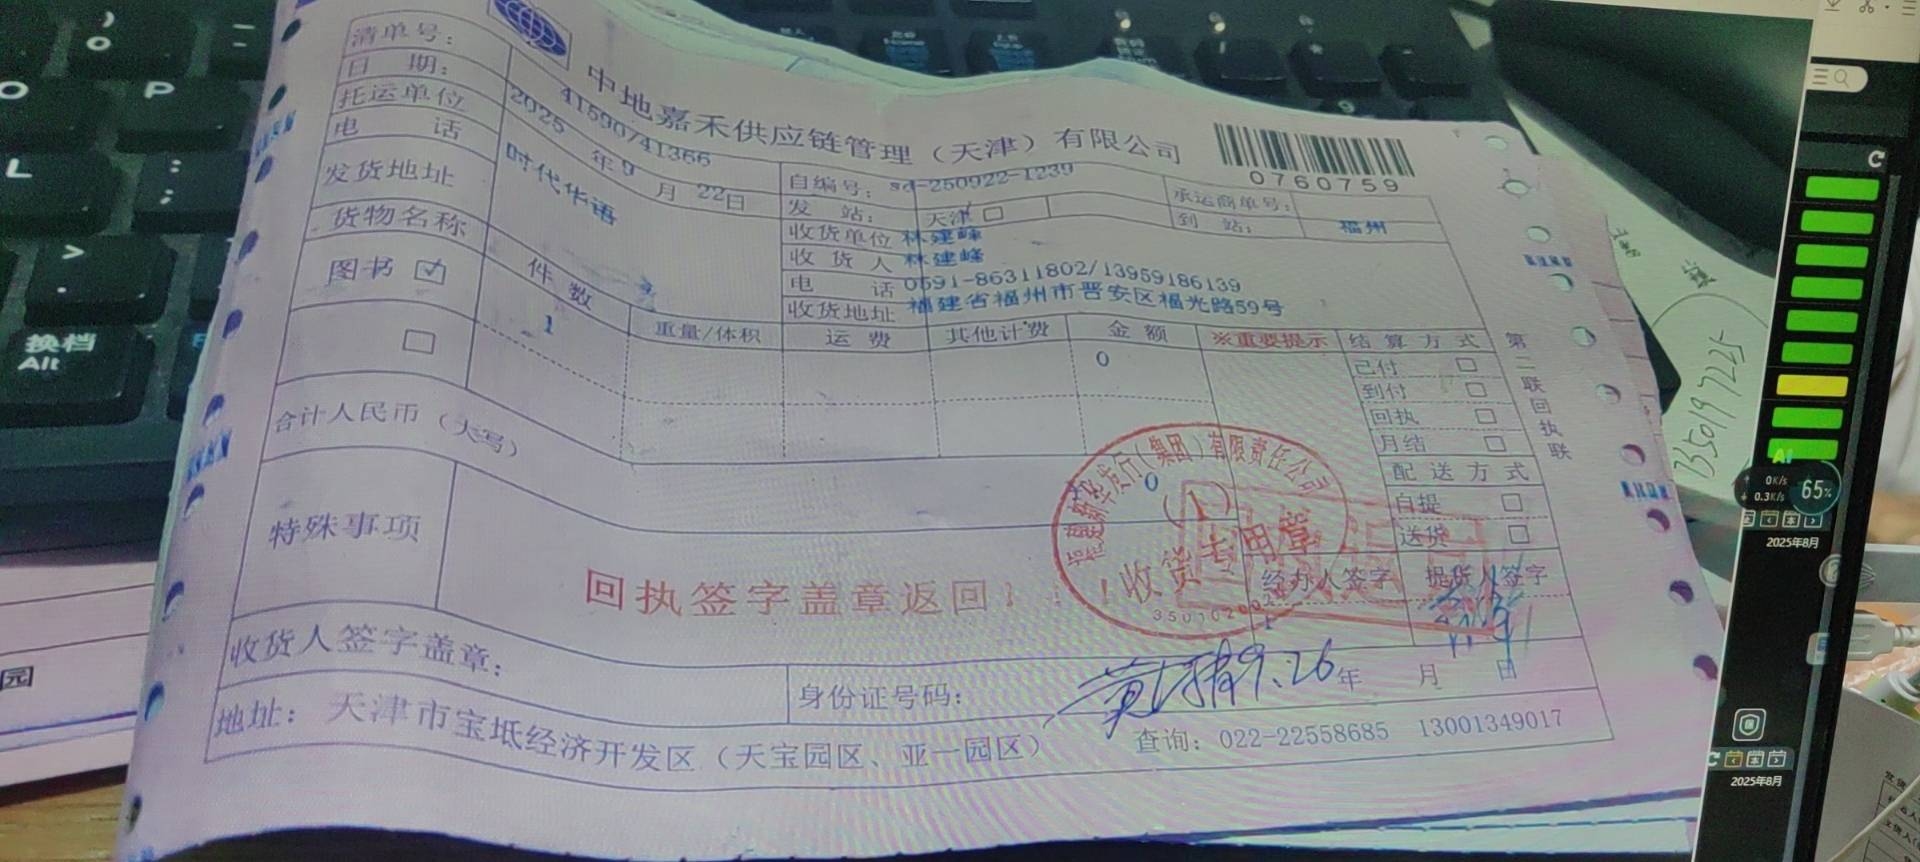 中地嘉禾供应链管理（天津）有限公司
0760759
清单号： 41590/41366 自编号： sd-250922-1239 承运商单号：
日 期： 2025 年 9 月 22 日 发 站： 天津 到 站： 福州
托运单位 时代华语 收货单位 林建峰
电 话 收 货 人 林建峰
电 话 0591-86311802/13959186139
发货地址 收货地址 福建省福州市晋安区福光路59号
货物名称 件 数 重量/体积 运 费 其他计费 金 额 ※重要提示 结 算 方 式
图书 1 0
已付
到付
回执
月结
配 送 方 式
自提
送货
合计人民币（大写） 0
特殊事项
回执签字盖章返回！
经办人签字 提货人签字
1
收货人签字盖章：
身份证号码：
9.26 年 月 日
地址： 天津市宝坻经济开发区（天宝园区、亚一园区） 查询：022-22558685 13001349017
第二联回执联
福建新华发行（集团）有限责任公司
（1）
收货专用章
换档
Alt
O
P
L
园
65%
0K/s
0.3K/s
AI
2025年8月
2025年8月